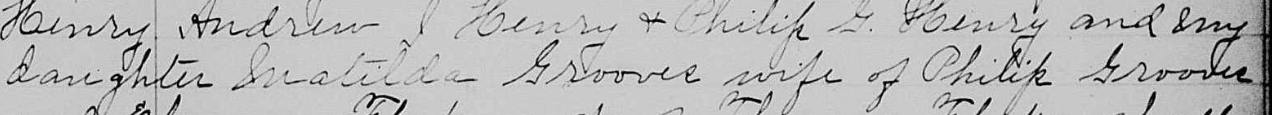 Henry Andrew J Henry & Philip G. Henry and my
daughter Matilda Groover wife of Philip Groover